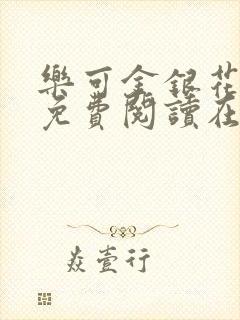 樂可金銀花
免費閱讀在
焱壹行